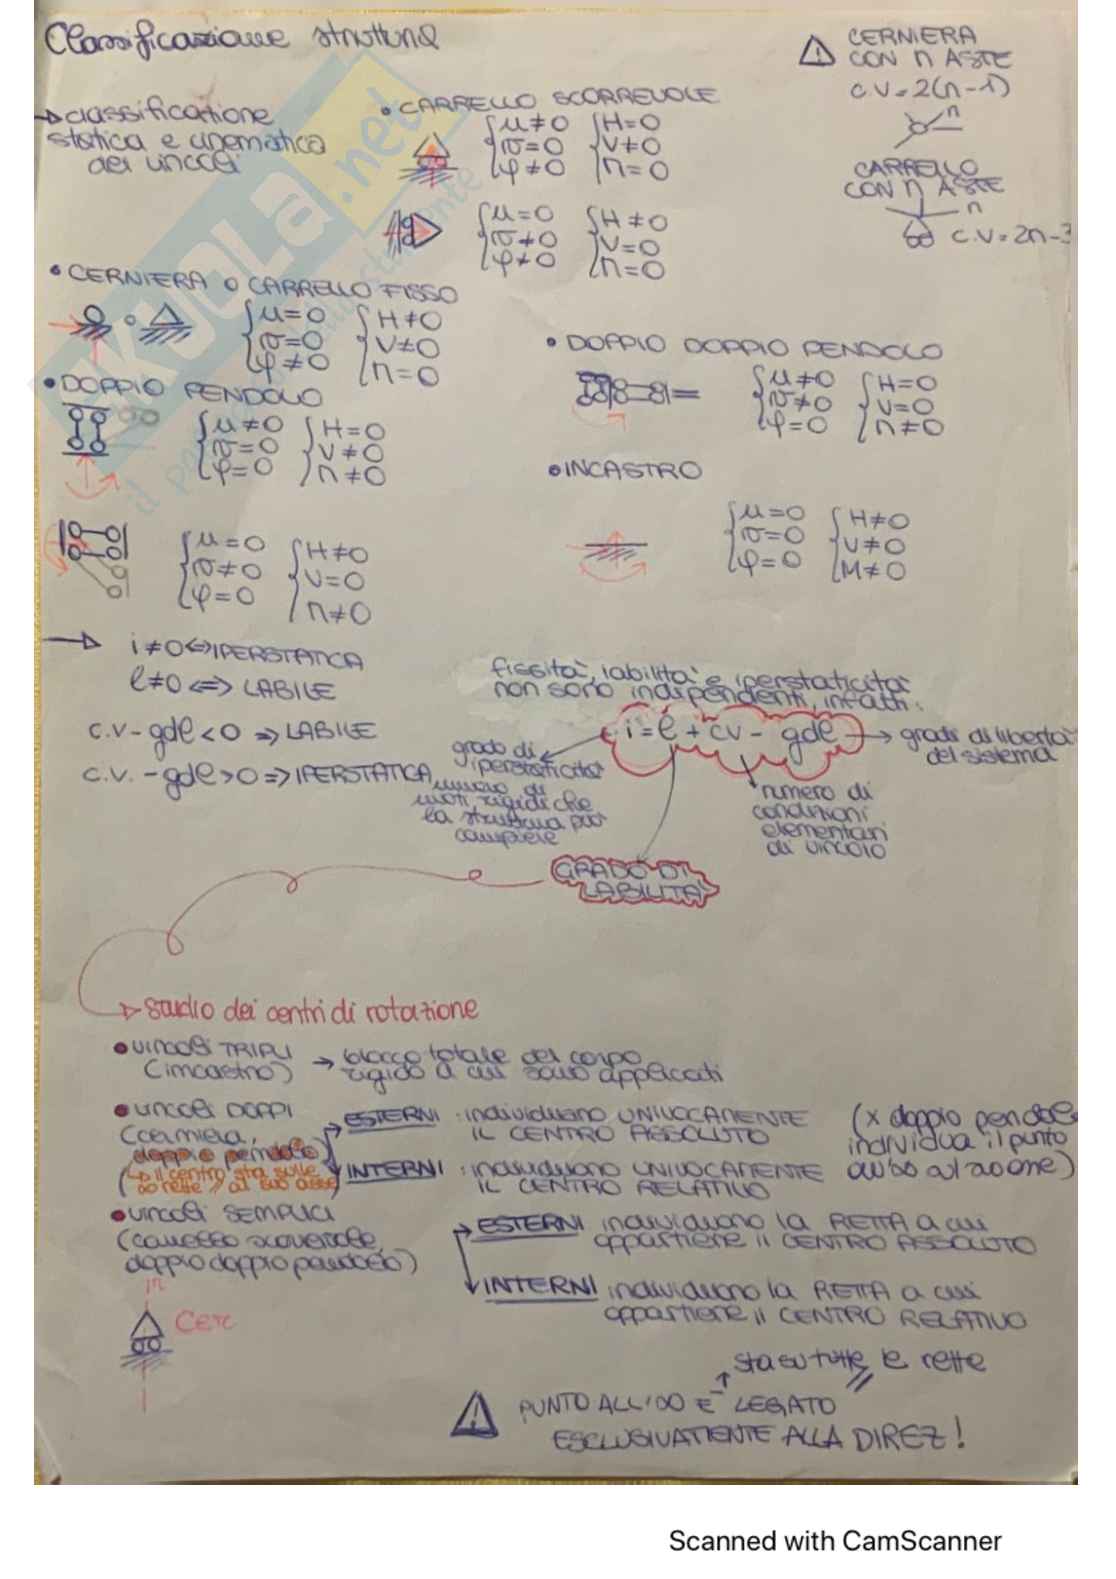 Classificazione strutture
→ classificazione
statica e cinematica
dei vincoli
• CARRELLO SCORREVOLE
u≠0 H=0
v=0 V≠0
φ≠0 n=0
u=0 H≠0
v≠0 V=0
φ≠0 n=0
⚠ CERNIERA
CON n ASTE
c.v=2(n-1)
n
CARRELLO
CON n ASTE
n
c.v=2n-3
• CERNIERA O CARRELLO FISSO
u=0 H≠0
v=0 V≠0
φ≠0 n=0
• DOPPIO PENDOLO
u≠0 H=0
v=0 V≠0
φ=0 n≠0
u=0 H≠0
v≠0 V=0
φ=0 n≠0
• DOPPIO DOPPIO PENDOLO
u≠0 H=0
v≠0 V=0
φ=0 n≠0
• INCASTRO
u=0 H≠0
v=0 V≠0
φ=0 M≠0
→ i≠0 <=> IPERSTATICA
l≠0 <=> LABILE
c.v - gdl < 0 => LABILE
c.v. - gdl > 0 => IPERSTATICA
fissità, labilità e iperstaticità
non sono indipendenti, infatti:
i = l + cv - gdl → gradi di libertà
del sistema
grado di
iperstaticità
numero di
moti rigidi che
la struttura può
compiere
numero di
condizioni
elementari
di vincolo
GRADO DI
LABILITÀ
→ studio dei centri di rotazione
• vincoli TRIPLI → blocco totale del corpo
(incastro) rigido a cui sono applicati
• vincoli DOPPI
(cerniera,
doppio pendolo)
(↳ il centro sta sulle
∞ rette // al suo asse)
ESTERNI: individuano UNIVOCAMENTE
IL CENTRO ASSOLUTO
INTERNI: individuano UNIVOCAMENTE
IL CENTRO RELATIVO
(x doppio pendolo
individua il punto
all'∞ di azione)
• vincoli SEMPLICI
(carrello scorrevole,
doppio doppio pendolo)
→ ESTERNI individuano la RETTA a cui
appartiene il CENTRO ASSOLUTO
INTERNI individuano la RETTA a cui
appartiene il CENTRO RELATIVO
sta su tutte le rette //
⚠ PUNTO ALL'∞ È LEGATO
ESCLUSIVAMENTE ALLA DIREZ!
SKUOLA.net
Scanned with CamScanner